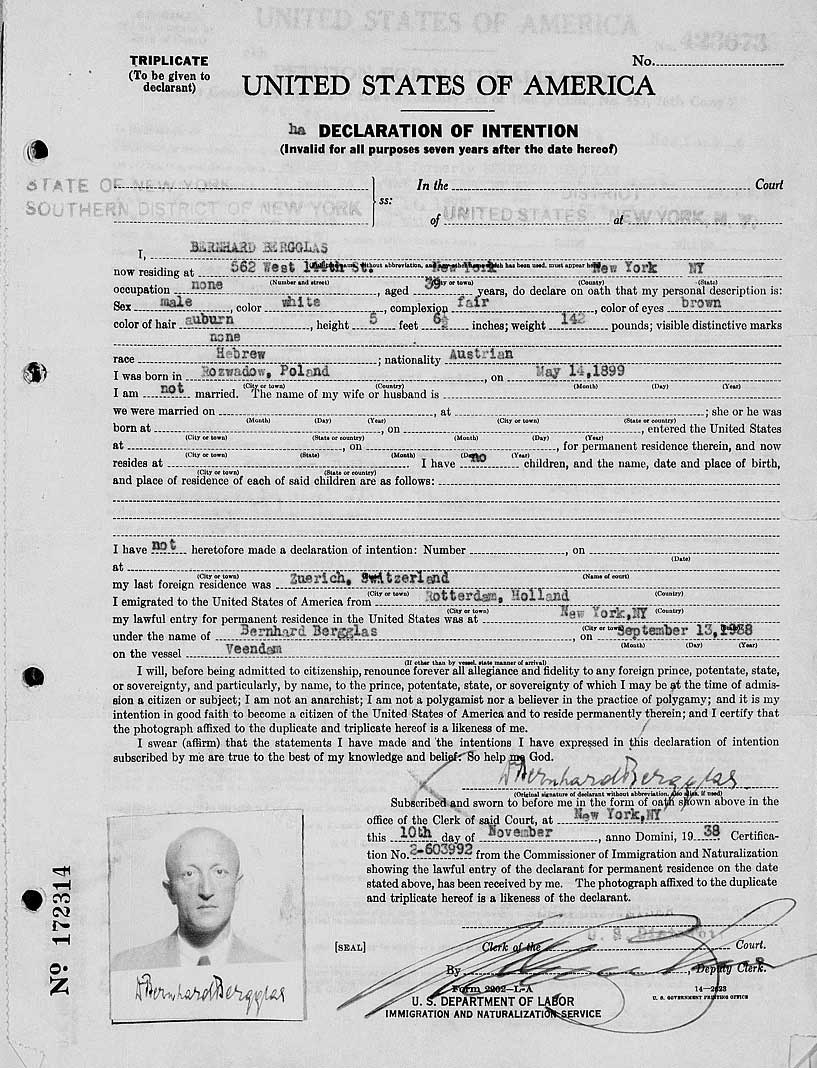 UNITED STATES OF AMERICA
No. 423673
TRIPLICATE
(To be given to
declarant)
No.
UNITED STATES OF AMERICA
ha DECLARATION OF INTENTION
(Invalid for all purposes seven years after the date hereof)
STATE OF NEW YORK
SOUTHERN DISTRICT OF NEW YORK
ss:
In the DISTRICT Court
of UNITED STATES at NEW YORK, N. Y.
I, BERNHARD BERGGLAS
now residing at 562 West 144th St. New York New York NY
(Number and street) (City or town) (County) (State)
occupation none, aged 39 years, do declare on oath that my personal description is:
Sex male, color white, complexion fair, color of eyes brown
color of hair auburn, height 5 feet 6½ inches; weight 142 pounds; visible distinctive marks
none
race Hebrew; nationality Austrian
I was born in Rozwadow, Poland, on May 14,1899
(City or town) (Country) (Month) (Day) (Year)
I am not married. The name of my wife or husband is
we were married on, at; she or he was
(Month) (Day) (Year) (City or town) (State or country)
born at, on, entered the United States
(City or town) (State or country) (Month) (Day) (Year)
at, on, for permanent residence therein, and now
(City or town) (State) (Month) (Day) (Year)
resides at. I have no children, and the name, date and place of birth,
(City or town) (State or country)
and place of residence of each of said children are as follows:
I have not heretofore made a declaration of intention: Number, on
(Date)
at
(City or town) (Name of court)
my last foreign residence was Zuerich, Switzerland
(City or town) (Country)
I emigrated to the United States of America from Rotterdam, Holland
(City or town) (Country)
my lawful entry for permanent residence in the United States was at New York,NY
(City or town) (State)
under the name of Bernhard Bergglas, on September 13,1938
(Month) (Day) (Year)
on the vessel Veendam
(If other than by vessel, state manner of arrival)
I will, before being admitted to citizenship, renounce forever all allegiance and fidelity to any foreign prince, potentate, state,
or sovereignty, and particularly, by name, to the prince, potentate, state, or sovereignty of which I may be at the time of admis-
sion a citizen or subject; I am not an anarchist; I am not a polygamist nor a believer in the practice of polygamy; and it is my
intention in good faith to become a citizen of the United States of America and to reside permanently therein; and I certify that
the photograph affixed to the duplicate and triplicate hereof is a likeness of me.
I swear (affirm) that the statements I have made and the intentions I have expressed in this declaration of intention
subscribed by me are true to the best of my knowledge and belief: So help me God.
Dr Bernhard Bergglas
(Original signature of declarant without abbreviation, also alias, if used)
Subscribed and sworn to before me in the form of oath shown above in the
office of the Clerk of said Court, at New York,NY
this 10th day of November, anno Domini, 19 38 Certifica-
tion No. 2-603992 from the Commissioner of Immigration and Naturalization
showing the lawful entry of the declarant for permanent residence on the date
stated above, has been received by me. The photograph affixed to the duplicate
and triplicate hereof is a likeness of the declarant.
U. S. District
[SEAL] Clerk of the Court.
By, Deputy Clerk.
Form 2202-L-A
U. S. DEPARTMENT OF LABOR
IMMIGRATION AND NATURALIZATION SERVICE
14-2623
U. S. GOVERNMENT PRINTING OFFICE
Dr Bernhard Bergglas
No 172314